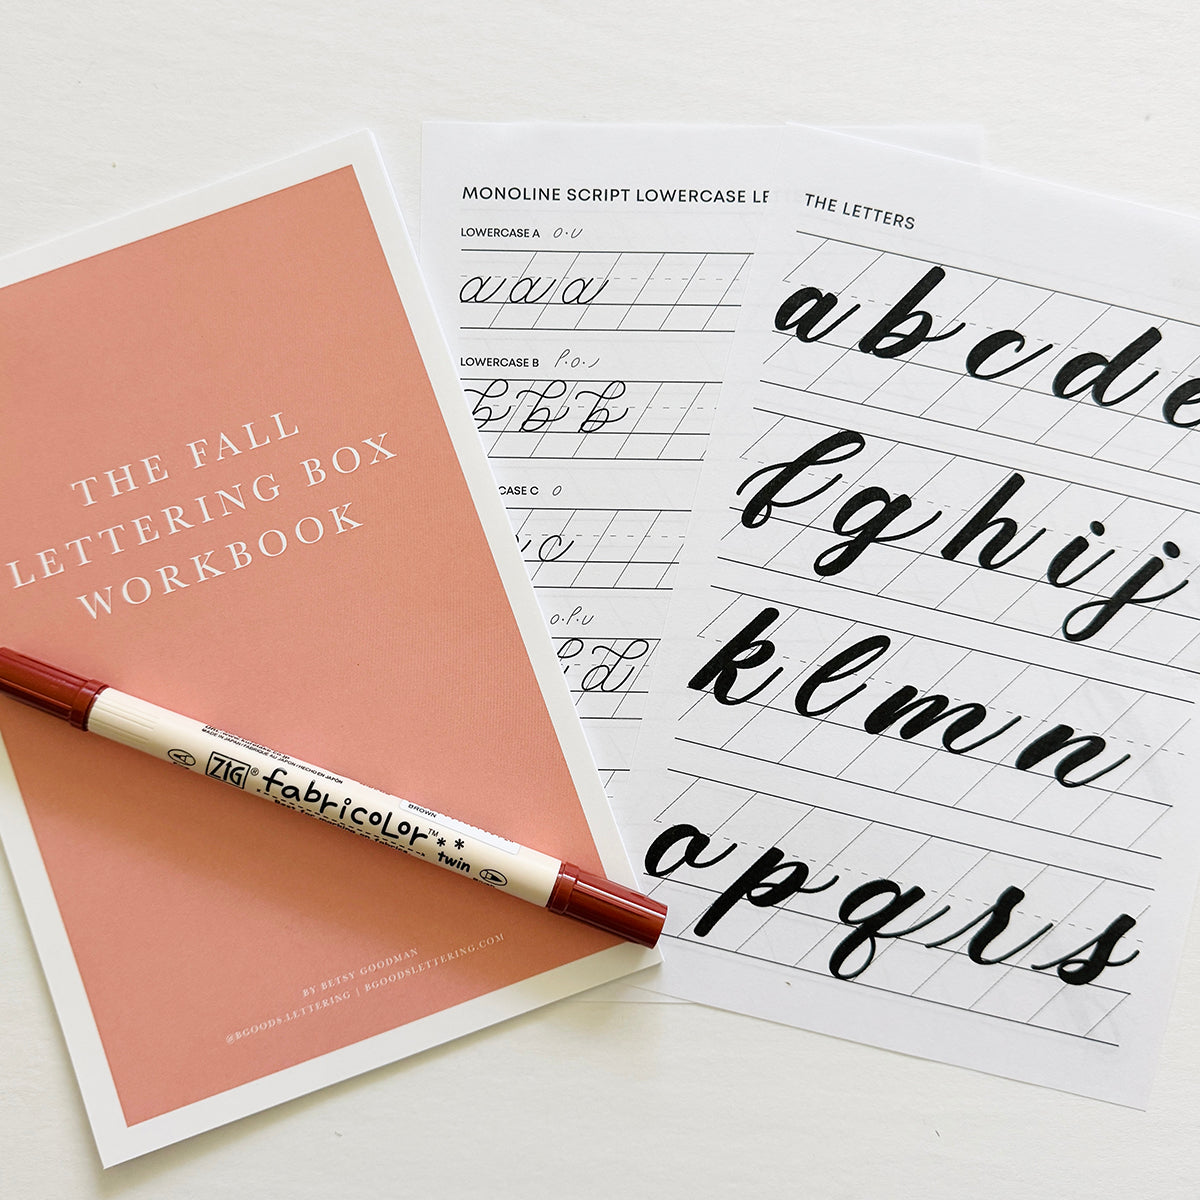 THE FALL
LETTERING BOX
WORKBOOK
BY BETSY GOODMAN
@BGOODS.LETTERING | BGOODSLETTERING.COM
MADE IN JAPAN/FABRIQUÉ AU JAPON/HECHO EN JAPÓN
ZIG® fabricolor™ twin
BROWN
MONOLINE SCRIPT LOWERCASE
LOWERCASE A o·u
a a a
LOWERCASE B l·o·
b b b
CASE C o
c
o·l·u
d d
THE LETTERS
a b c d e
f g h i j
k l m n
o p q r s